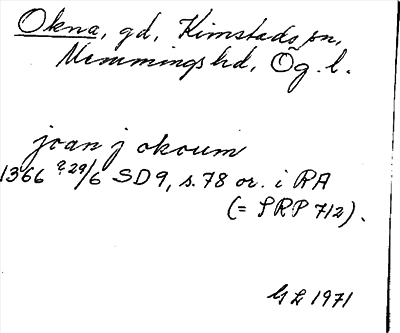 Okna, gd, Kimstads sn,
Memmings hd, Ög. l.
joan j okoum
1366 ?29/6 SD9, s. 78 or. i RA
(= SRP 712).
GL 1971